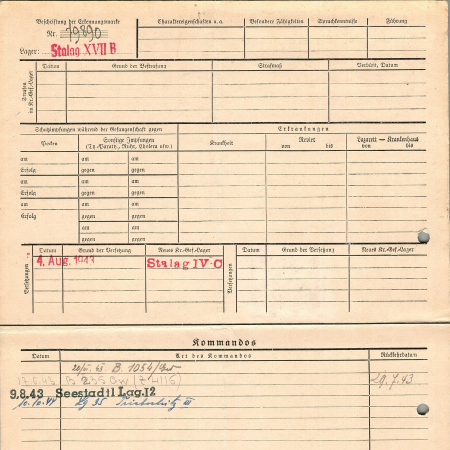 Beschriftung der Erkennungsmarke
Nr. 79890
Lager: Stalag XVII B
Charaktereigenschaften u.a.
Besondere Fähigkeiten
Sprachkenntnisse
Führung
Strafen in Kr.-Gef.-Lager
Datum
Grund der Bestrafung
Strafmaß
Verbüßt, Datum
Schutzimpfungen während der Gefangenschaft gegen
Erkrankungen
Pocken
Sonstige Impfungen
(Ty.-Paraty., Ruhr, Cholera usw.)
Krankheit
Revier
von bis
Lazarett — Krankenhaus
von bis
am am am
Erfolg gegen gegen
am am am
Erfolg gegen gegen
am am am
Erfolg gegen gegen
am am
gegen gegen
Versetzungen
Datum
Grund der Versetzung
Neues Kr.-Gef.-Lager
4. Aug. 1943
Stalag IV-C
Versetzungen
Datum
Grund der Versetzung
Neues Kr.-Gef.-Lager
Kommandos
Datum Art des Kommandos Rückkehrdatum
B. 1054/Gw
B 235 Gw 29.7.43
9.8.43 Seestadtl Lag.12
10.10.44